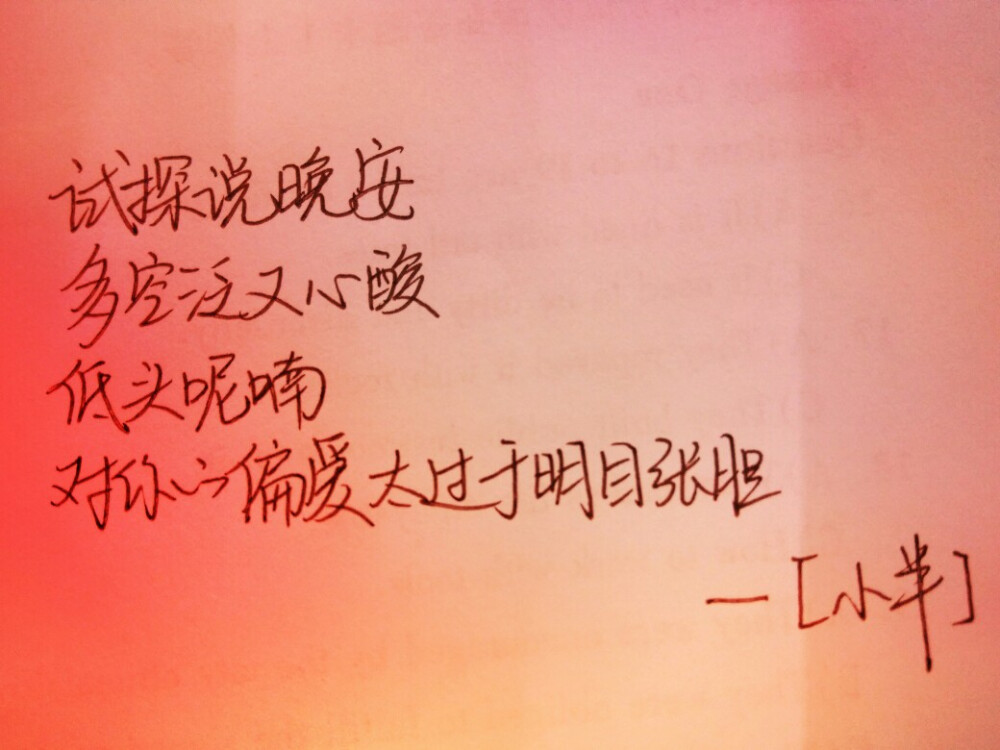 试探说晚安
多空泛又心酸
低头呢喃
对你心偏爱太过于明目张胆
—[小半]